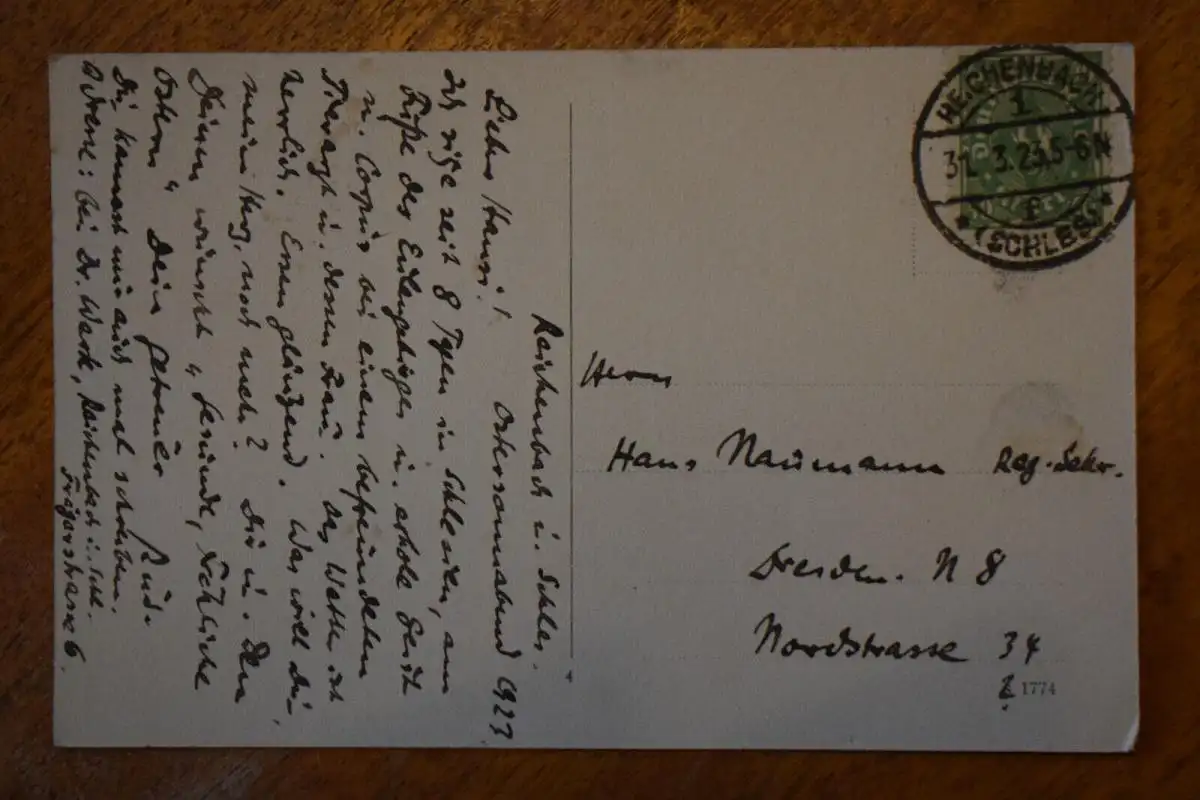 Reichenbach i. Schles.
Ostersonnabend 1923
Lieber Hans!
Ich sitze seit 8 Tagen in Schlesien, am
Fuße des Eulengebirges u. erhole Geist
u. Corpus bei einem befreundeten
Tierarzt u. dessen Frau. Das Wetter ist
herrlich. Essen glänzend. Was willst Du,
mein Herz, noch mehr? Dir u. den
Deinen wünscht „gesunde, fröhliche
Ostern" Dein getreuer
Rud.
Du kannst mir auch mal schreiben.
Adresse: bei Dr. Reichenbach i. Schl.
6.
REICHENBACH
1
31. 3.23.5-6N
f
* (SCHLES) *
Herrn
Hans Naumann Reg.-Sekr.
Dresden. N 8
Nordstrasse 34
4
1774